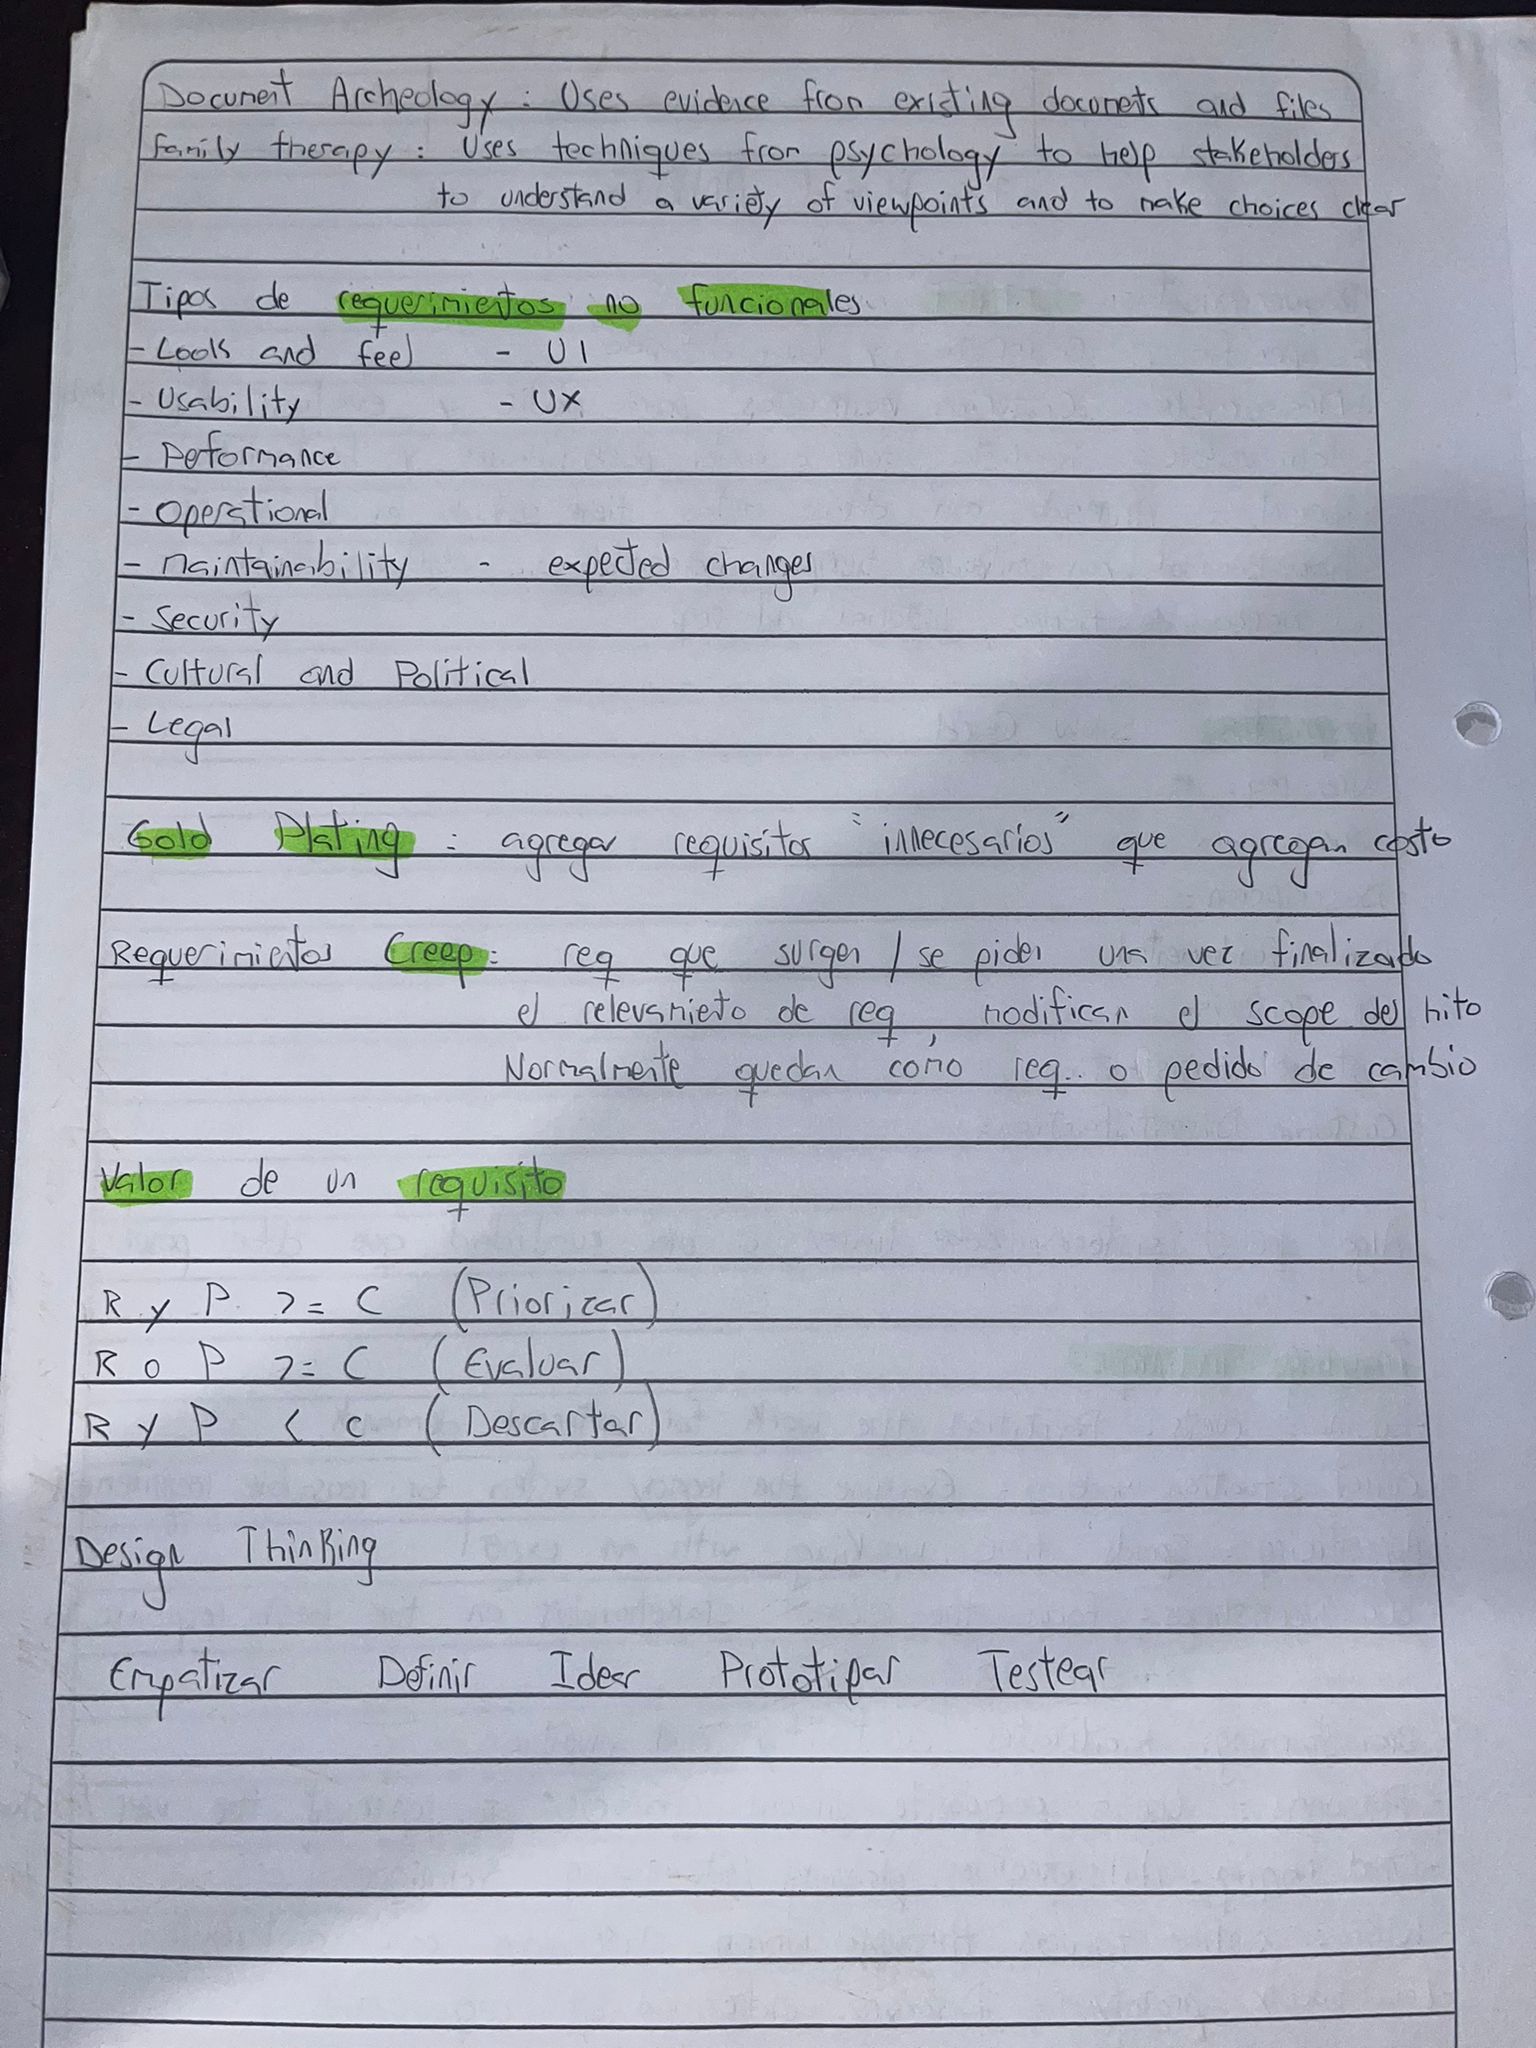 Document Archeology: Uses evidence from existing documets and files
family therapy: Uses techniques from psychology to help stakeholders
to understand a variety of viewpoints and to make choices clear
Tipos de requerimientos no funcionales
- Looks and feel - UI
- Usability - UX
- Peformance
- Operational
- Maintainability - expected changes
- Security
- Cultural and Political
- Legal
Gold Plating: agregar requisitos "innecesarios" que agregan costo
Requerimietos Creep: req que surgen / se piden una vez finalizado
el relevamieto de req, modifican el scope del hito
Normalmente quedan como req. o pedido de cambio
Valor de un requisito
R y P >= C (Priorizar)
R o P >= C (Evaluar)
R y P < C (Descartar)
Design Thinking
Empatizar Definir Idear Prototipar Testear